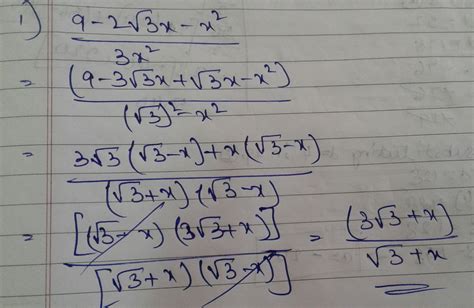 1) 9-2√3x-x²
3x²
= (9-3√3x+√3x-x²)
(√3)²-x²
= 3√3(√3-x)+x(√3-x)
(√3+x)(√3-x)
= [(√3-x)(3√3+x)] = (3√3+x)
[√3+x)(√3-x)] √3+x